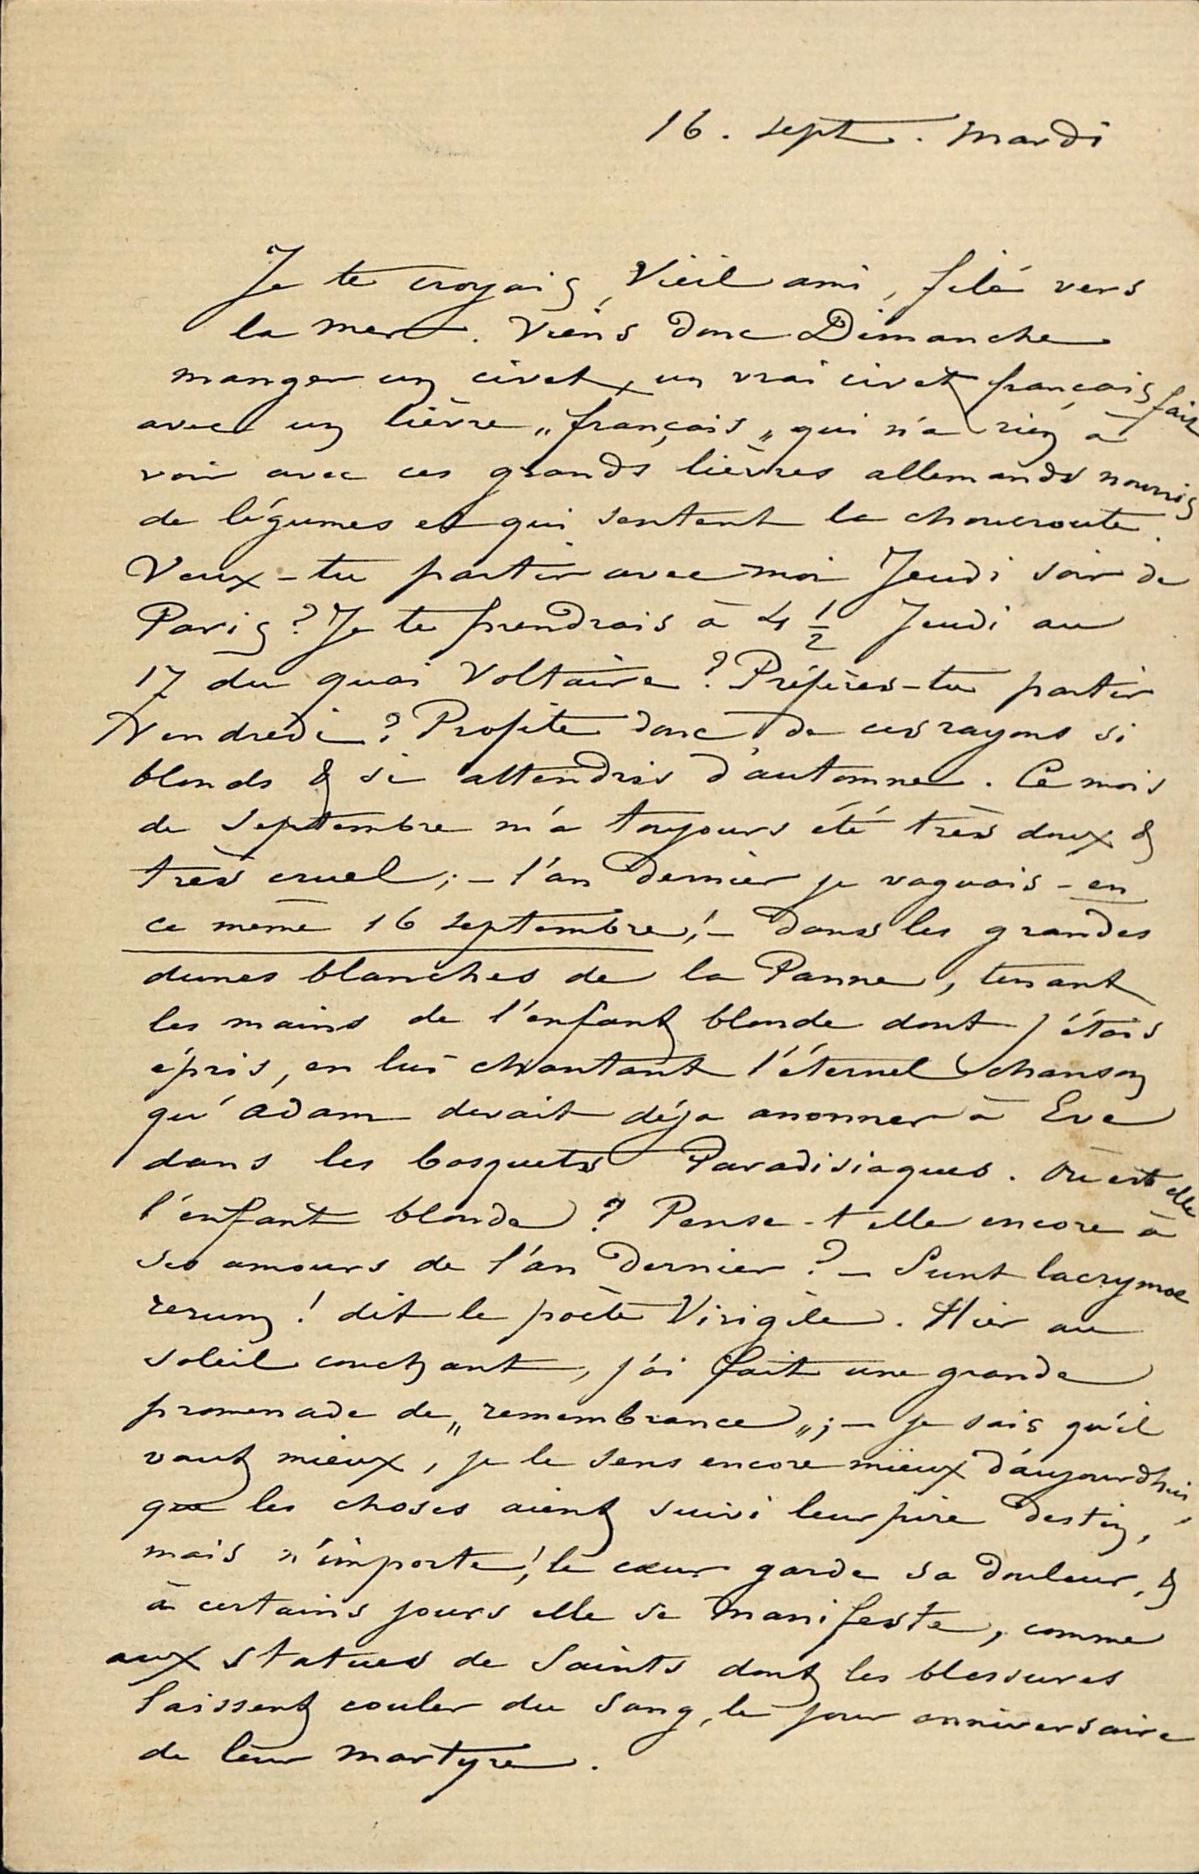 16. sept. Mardi
Je te croyais, Vieil ami, filé vers
la mer. Viens donc Dimanche
manger un civet, un vrai civet français fait
avec un lièvre „français„ qui n'a rien à
voir avec ces grands lièvres allemands nourris
de légumes et qui sentent la choucroute.
Veux-tu partir avec moi Jeudi soir de
Paris? Je te prendrais à 4 1/2 Jeudi au
17 du quai Voltaire? Préfères-tu partir
Vendredi? Profite donc de ces rayons si
blonds & si attendris d'automne. Ce mois
de Septembre m'a toujours été très doux &
très cruel; – l'an dernier je vaguais – en
ce même 16 septembre! – dans les grandes
dunes blanches de la Panne, tenant
les mains de l'enfant blonde dont j'étais
épris, en lui chantant l'éternel chanson
qu'Adam devait déja anonner à Eve
dans les bosquets Paradisiaques. Où est elle
l'enfant blonde? Pense-t elle encore à
ses amours de l'an dernier? – Sunt lacrymae
rerum! dit le poète Virigile. Hier au
soleil couchant, j'ai fait une grande
promenade de „remembrance„; – je sais qu'il
vaut mieux, je le sens encore mieux d'aujourd'hui,
que les choses aient suivi leur pire destin,
mais n'importe! le cœur garde sa douleur, &
à certains jours elle se manifeste, comme
aux statues de Saints dont les blessures
laissent couler du sang, le jour anniversaire
de leur martyre.